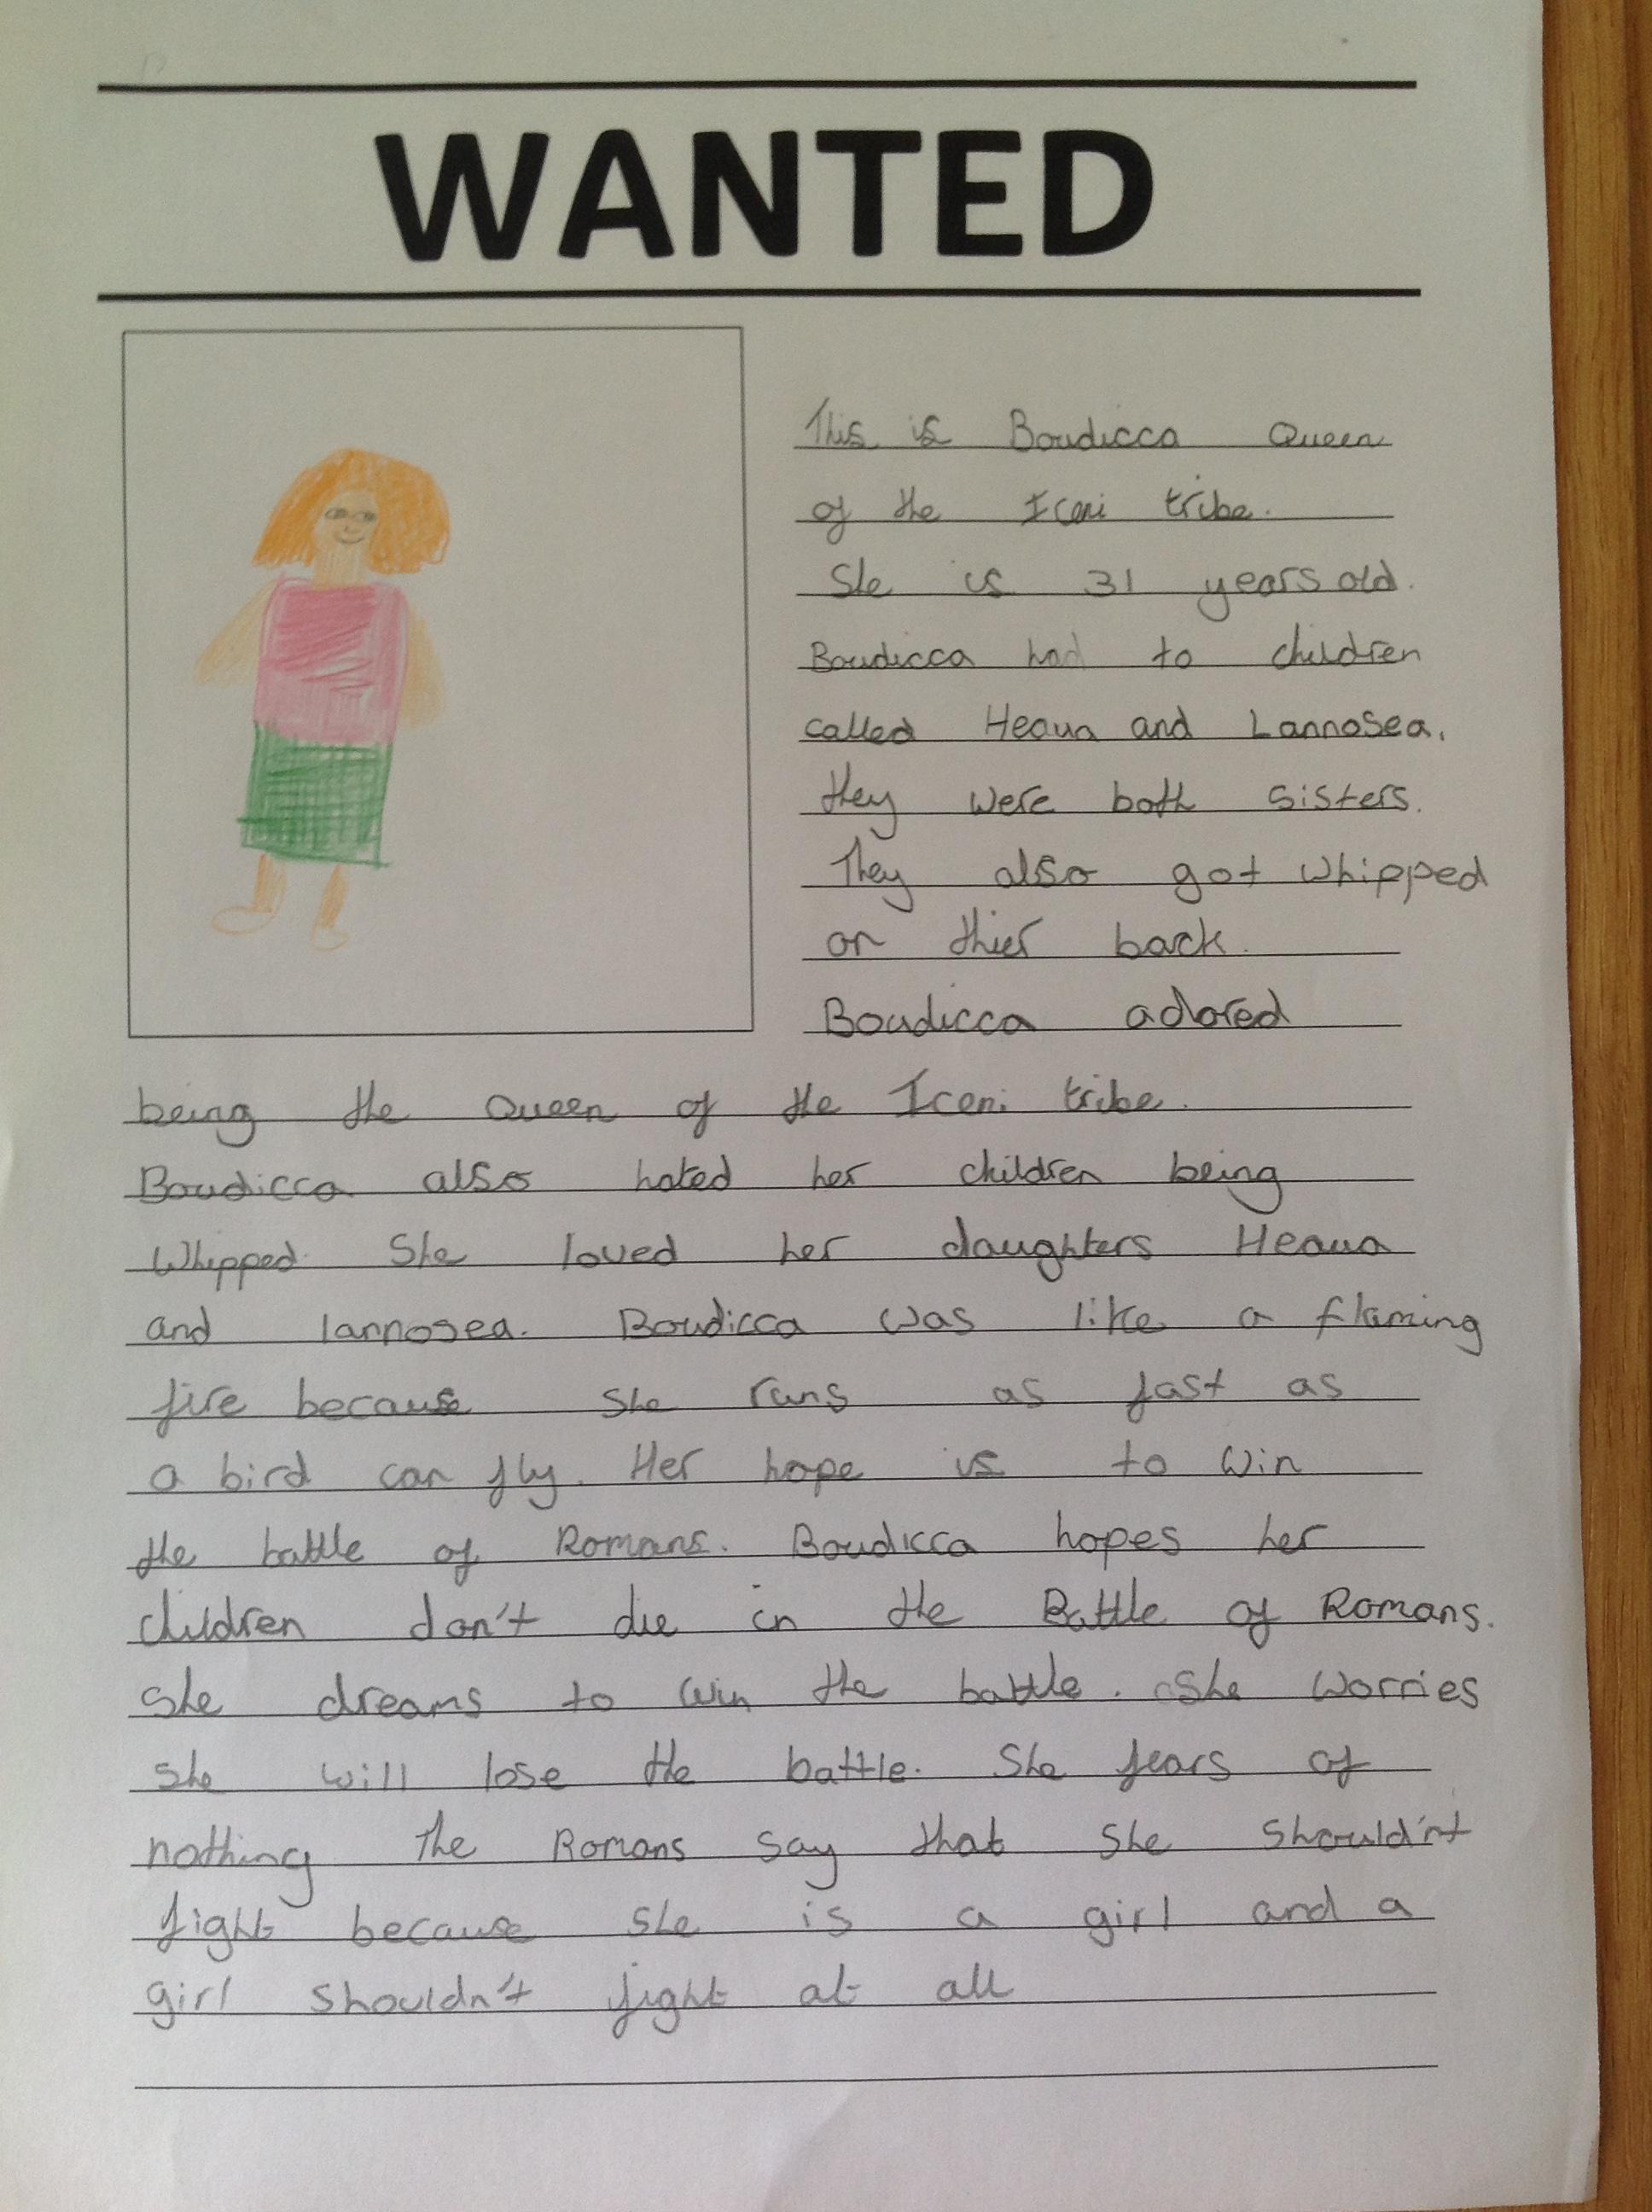 WANTED
This is Boudicca Queen
of the Iceni tribe.
She is 31 years old.
Boudicca had to children
called Heaua and Lannosea.
they were both sisters.
They also got whipped
on thier back.
Boudicca adored
being the Queen of the Iceni tribe.
Boudicca also hated her children being
whipped. She loved her daughters Heaua
and lannosea. Boudicca was like a flaming
fire because she runs as fast as
a bird can fly. Her hope is to win
the battle of Romans. Boudicca hopes her
children don't die in the Battle of Romans.
She dreams to win the battle. She worries
she will lose the battle. She fears of
nothing. The Romans say that she should'nt
fight because she is a girl and a
girl shouldn't fight at all